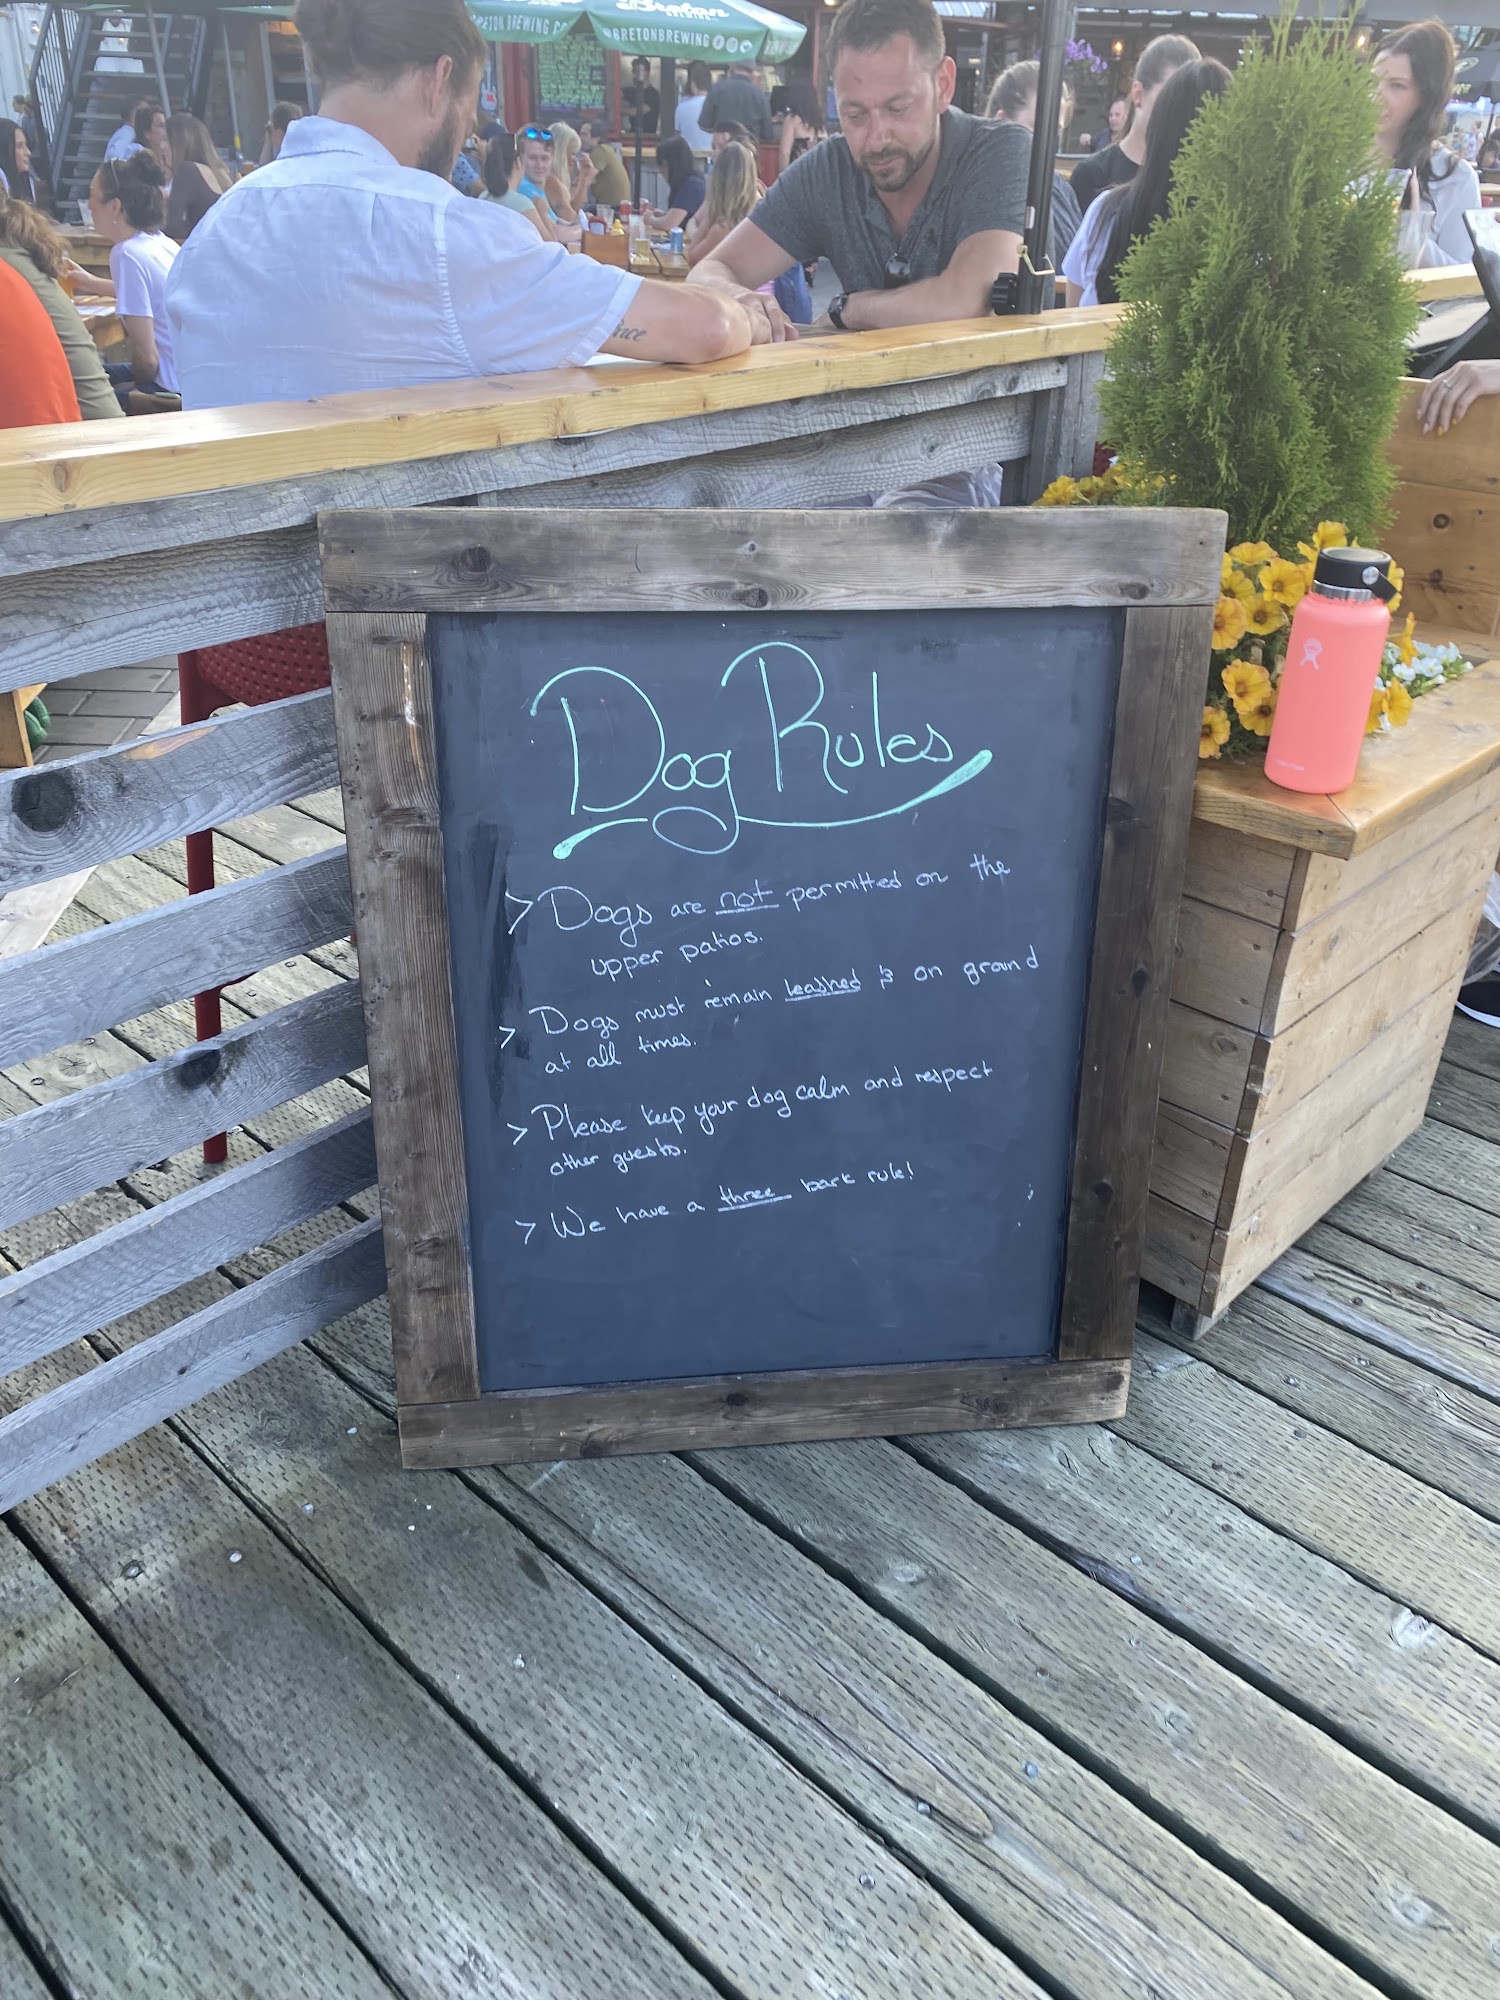 Breton
BREWING
BRETON BREWING CO
BRETONBREWING
nce
Dog Rules
> Dogs are not permitted on the
upper patios.
> Dogs must remain leashed & on ground
at all times.
> Please keep your dog calm and respect
other guests.
> We have a three bark rule!